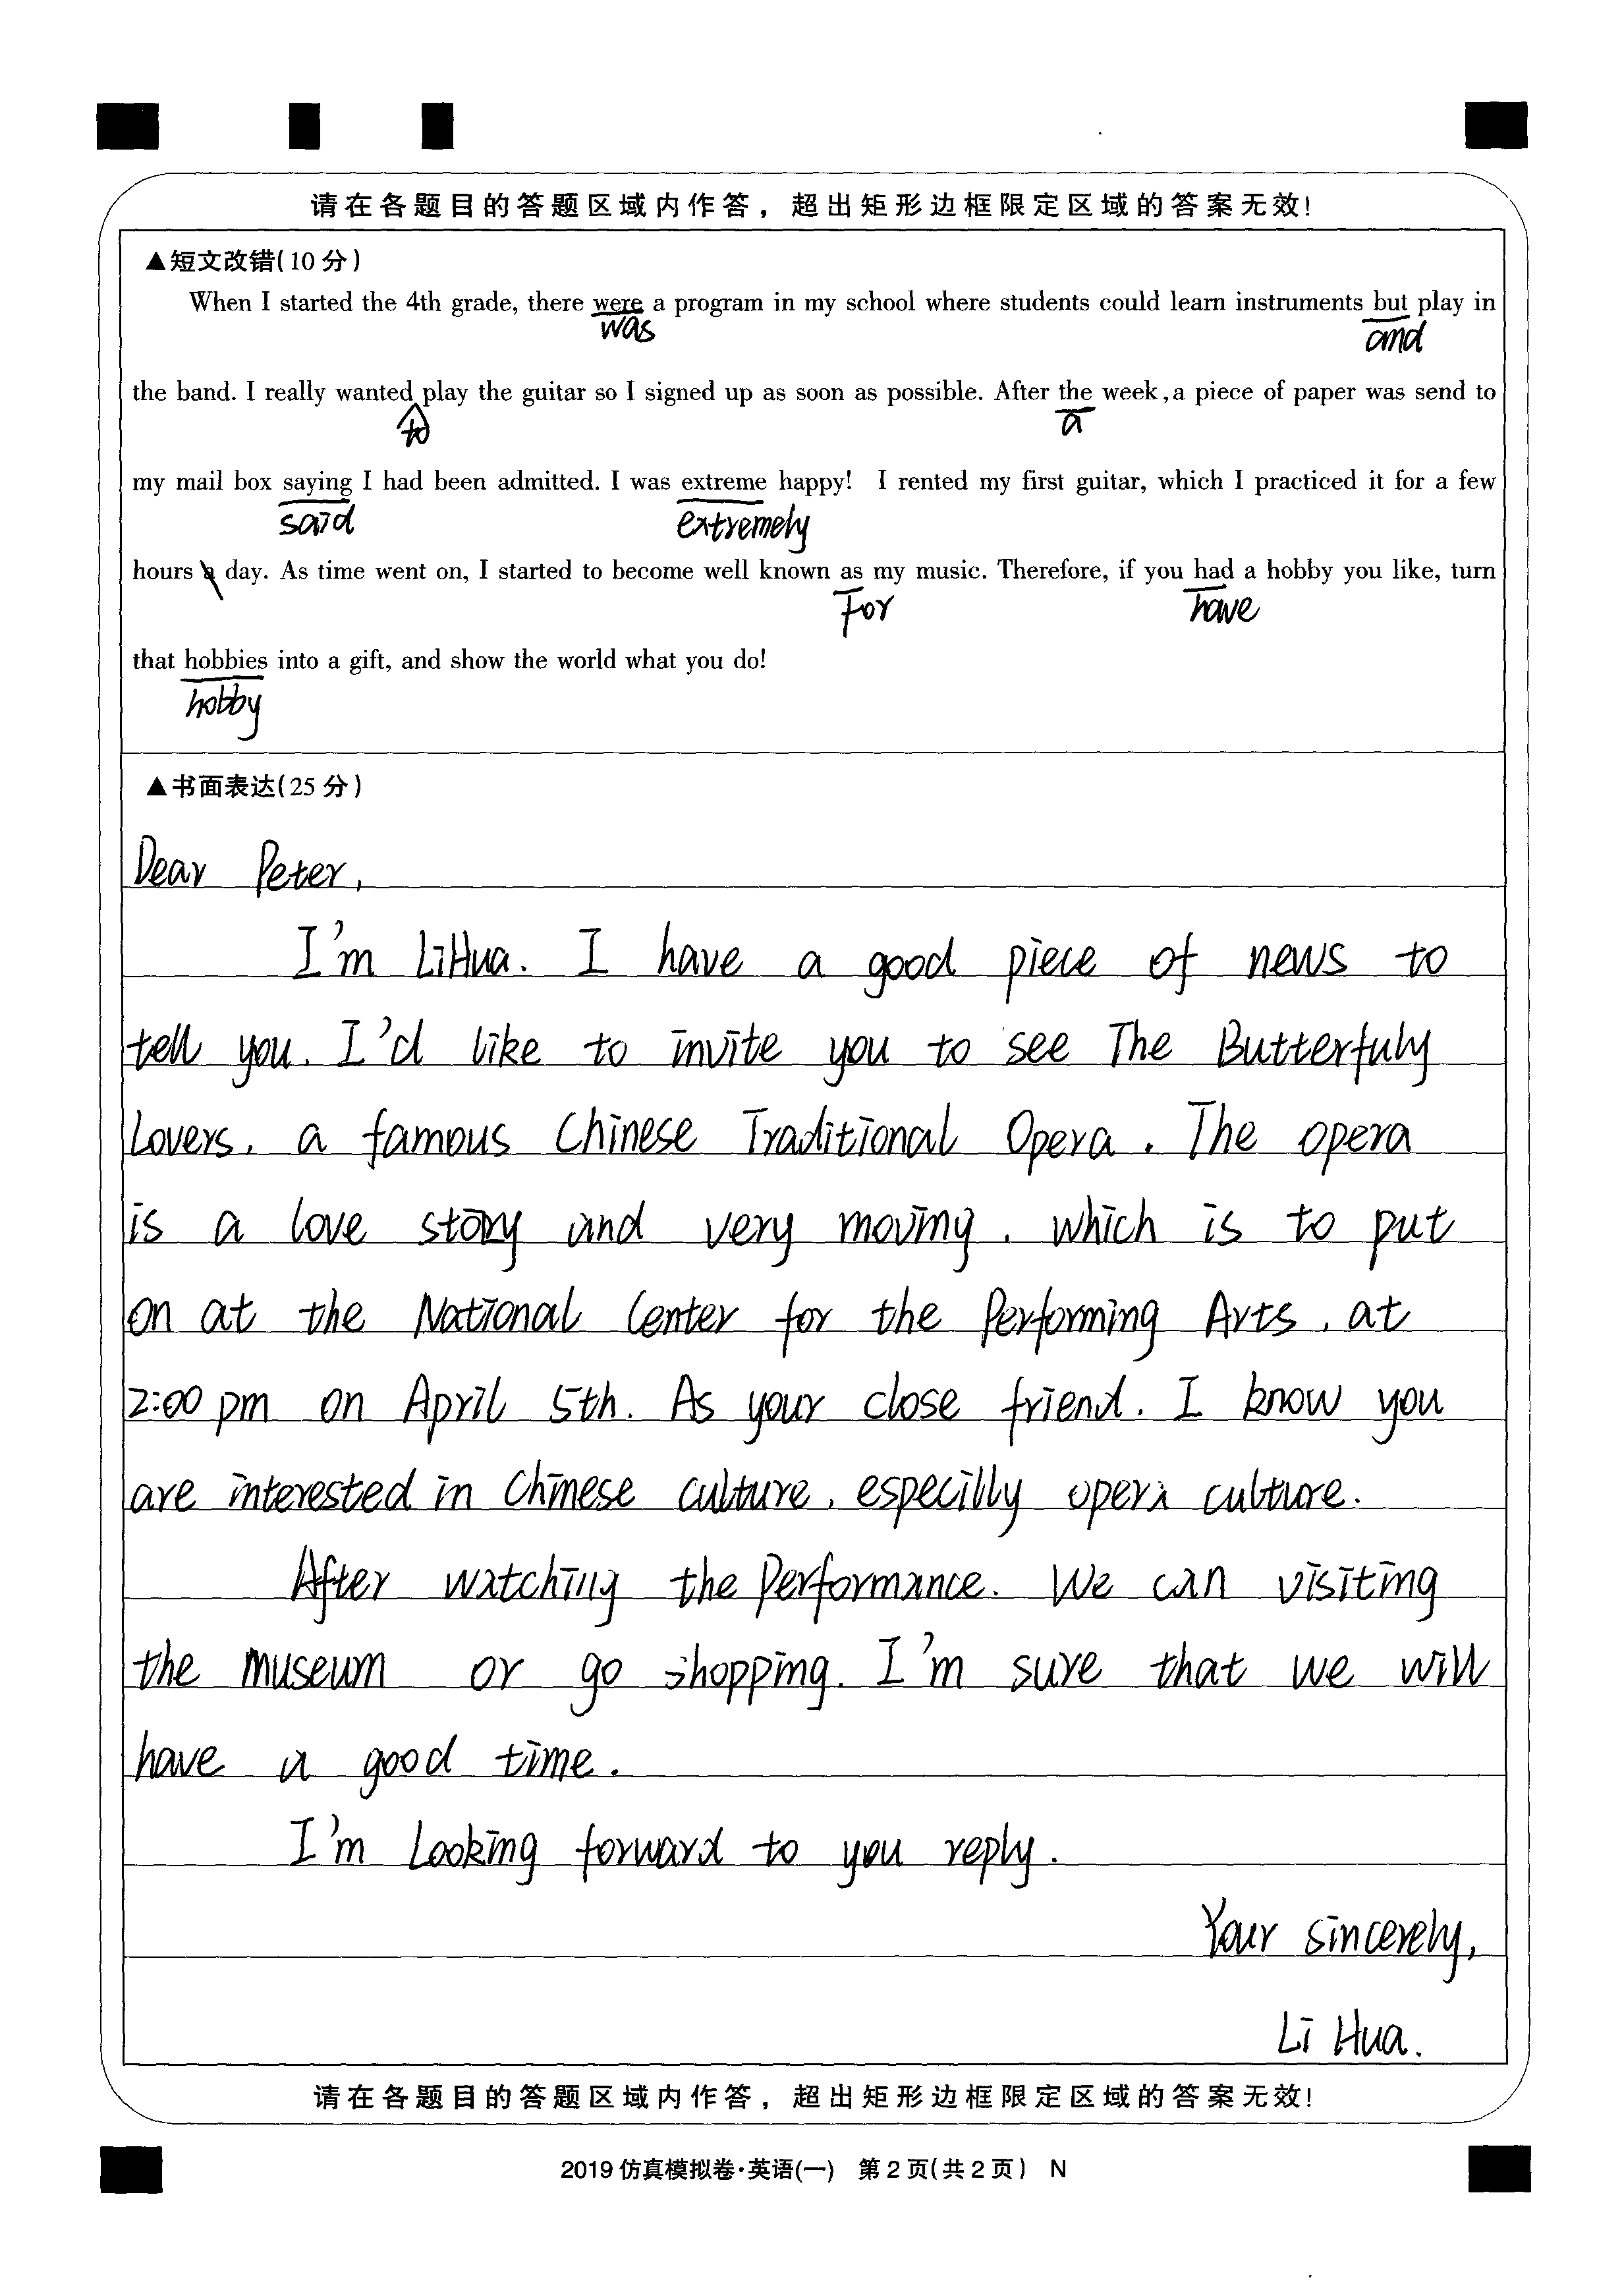 请在各题目的答题区域内作答，超出矩形边框限定区域的答案无效!
▲短文改错(10分)
When I started the 4th grade, there were a program in my school where students could learn instruments but play in
was
and
the band. I really wanted play the guitar so I signed up as soon as possible. After the week,a piece of paper was send to
to
a
my mail box saying I had been admitted. I was extreme happy! I rented my first guitar, which I practiced it for a few
said
extremely
hours a day. As time went on, I started to become well known as my music. Therefore, if you had a hobby you like, turn
For
have
that hobbies into a gift, and show the world what you do!
hobby
▲书面表达(25分)
Dear Peter,
I'm LiHua. I have a good piece of news to
tell you. I'd like to invite you to see The Butterfuly
Lovers, a famous Chinese Traditional Opera. The opera
is a love story and very moving, which is to put
on at the National Center for the Performing Arts, at
2:00 pm on April 5th. As your close friend. I know you
are interested in Chinese culture, especilly opera culture.
After watching the Performance. We can visiting
the museum or go shopping. I'm sure that we will
have a good time.
I'm Looking forward to you reply.
Your sincerely,
Li Hua.
请在各题目的答题区域内作答，超出矩形边框限定区域的答案无效!
2019仿真模拟卷·英语(一) 第2页(共2页) N